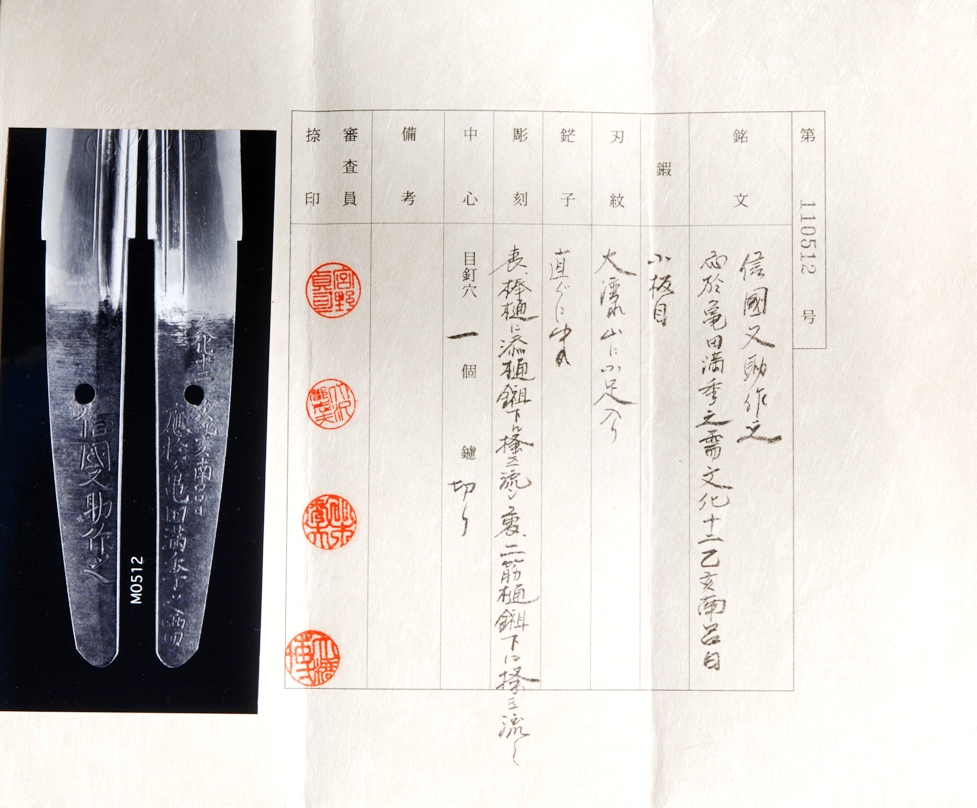 第 110512 号
銘文
信國又助作之
應於亀田満季之需文化十二乙亥南呂日
鍜
小板目
刃紋
大湾れ山に小足入り
鋩子
直ぐに中丸
彫刻
表、棒樋に添樋鎺下に掻き流し 裏、二筋樋鎺下に掻き流し
中心
目釘穴 一 個 鑢 切り
備考
審査員
捺印
M0512
信國又助作之